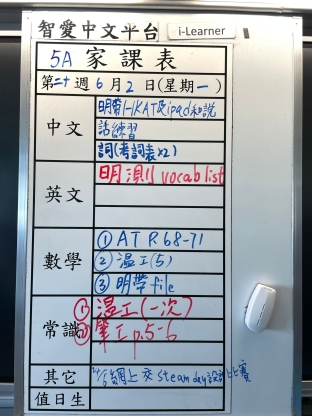 智愛中文平台 i-Learner
5A 家課表
第二十週6月2日(星期一)
中文
明帶HKAT及ipad和說
話練習
詞(考詞表x2)
英文
明測vocab list
數學
① AT R68-71
② 溫工(5)
③ 明帶file
常識
① 溫工(一次)
② 筆工p.5-6
其它
網上交Steam day設計比賽
值日生